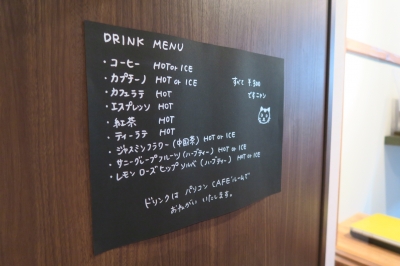 DRINK MENU
・コーヒー HOT or ICE
・カプチーノ HOT or ICE
・カフェラテ HOT
・エスプレッソ HOT
・紅茶 HOT
・ティーラテ HOT
・ジャスミンフラワー(中国茶) HOT or ICE
・サニーグレープフルーツ(ハーブティー) HOT or ICE
・レモンローズヒップソルベ(ハーブティー) HOT or ICE
すべて ¥300
ですニャン
ドリンクは パソコン CAFEるーむで
おねがい いたします。